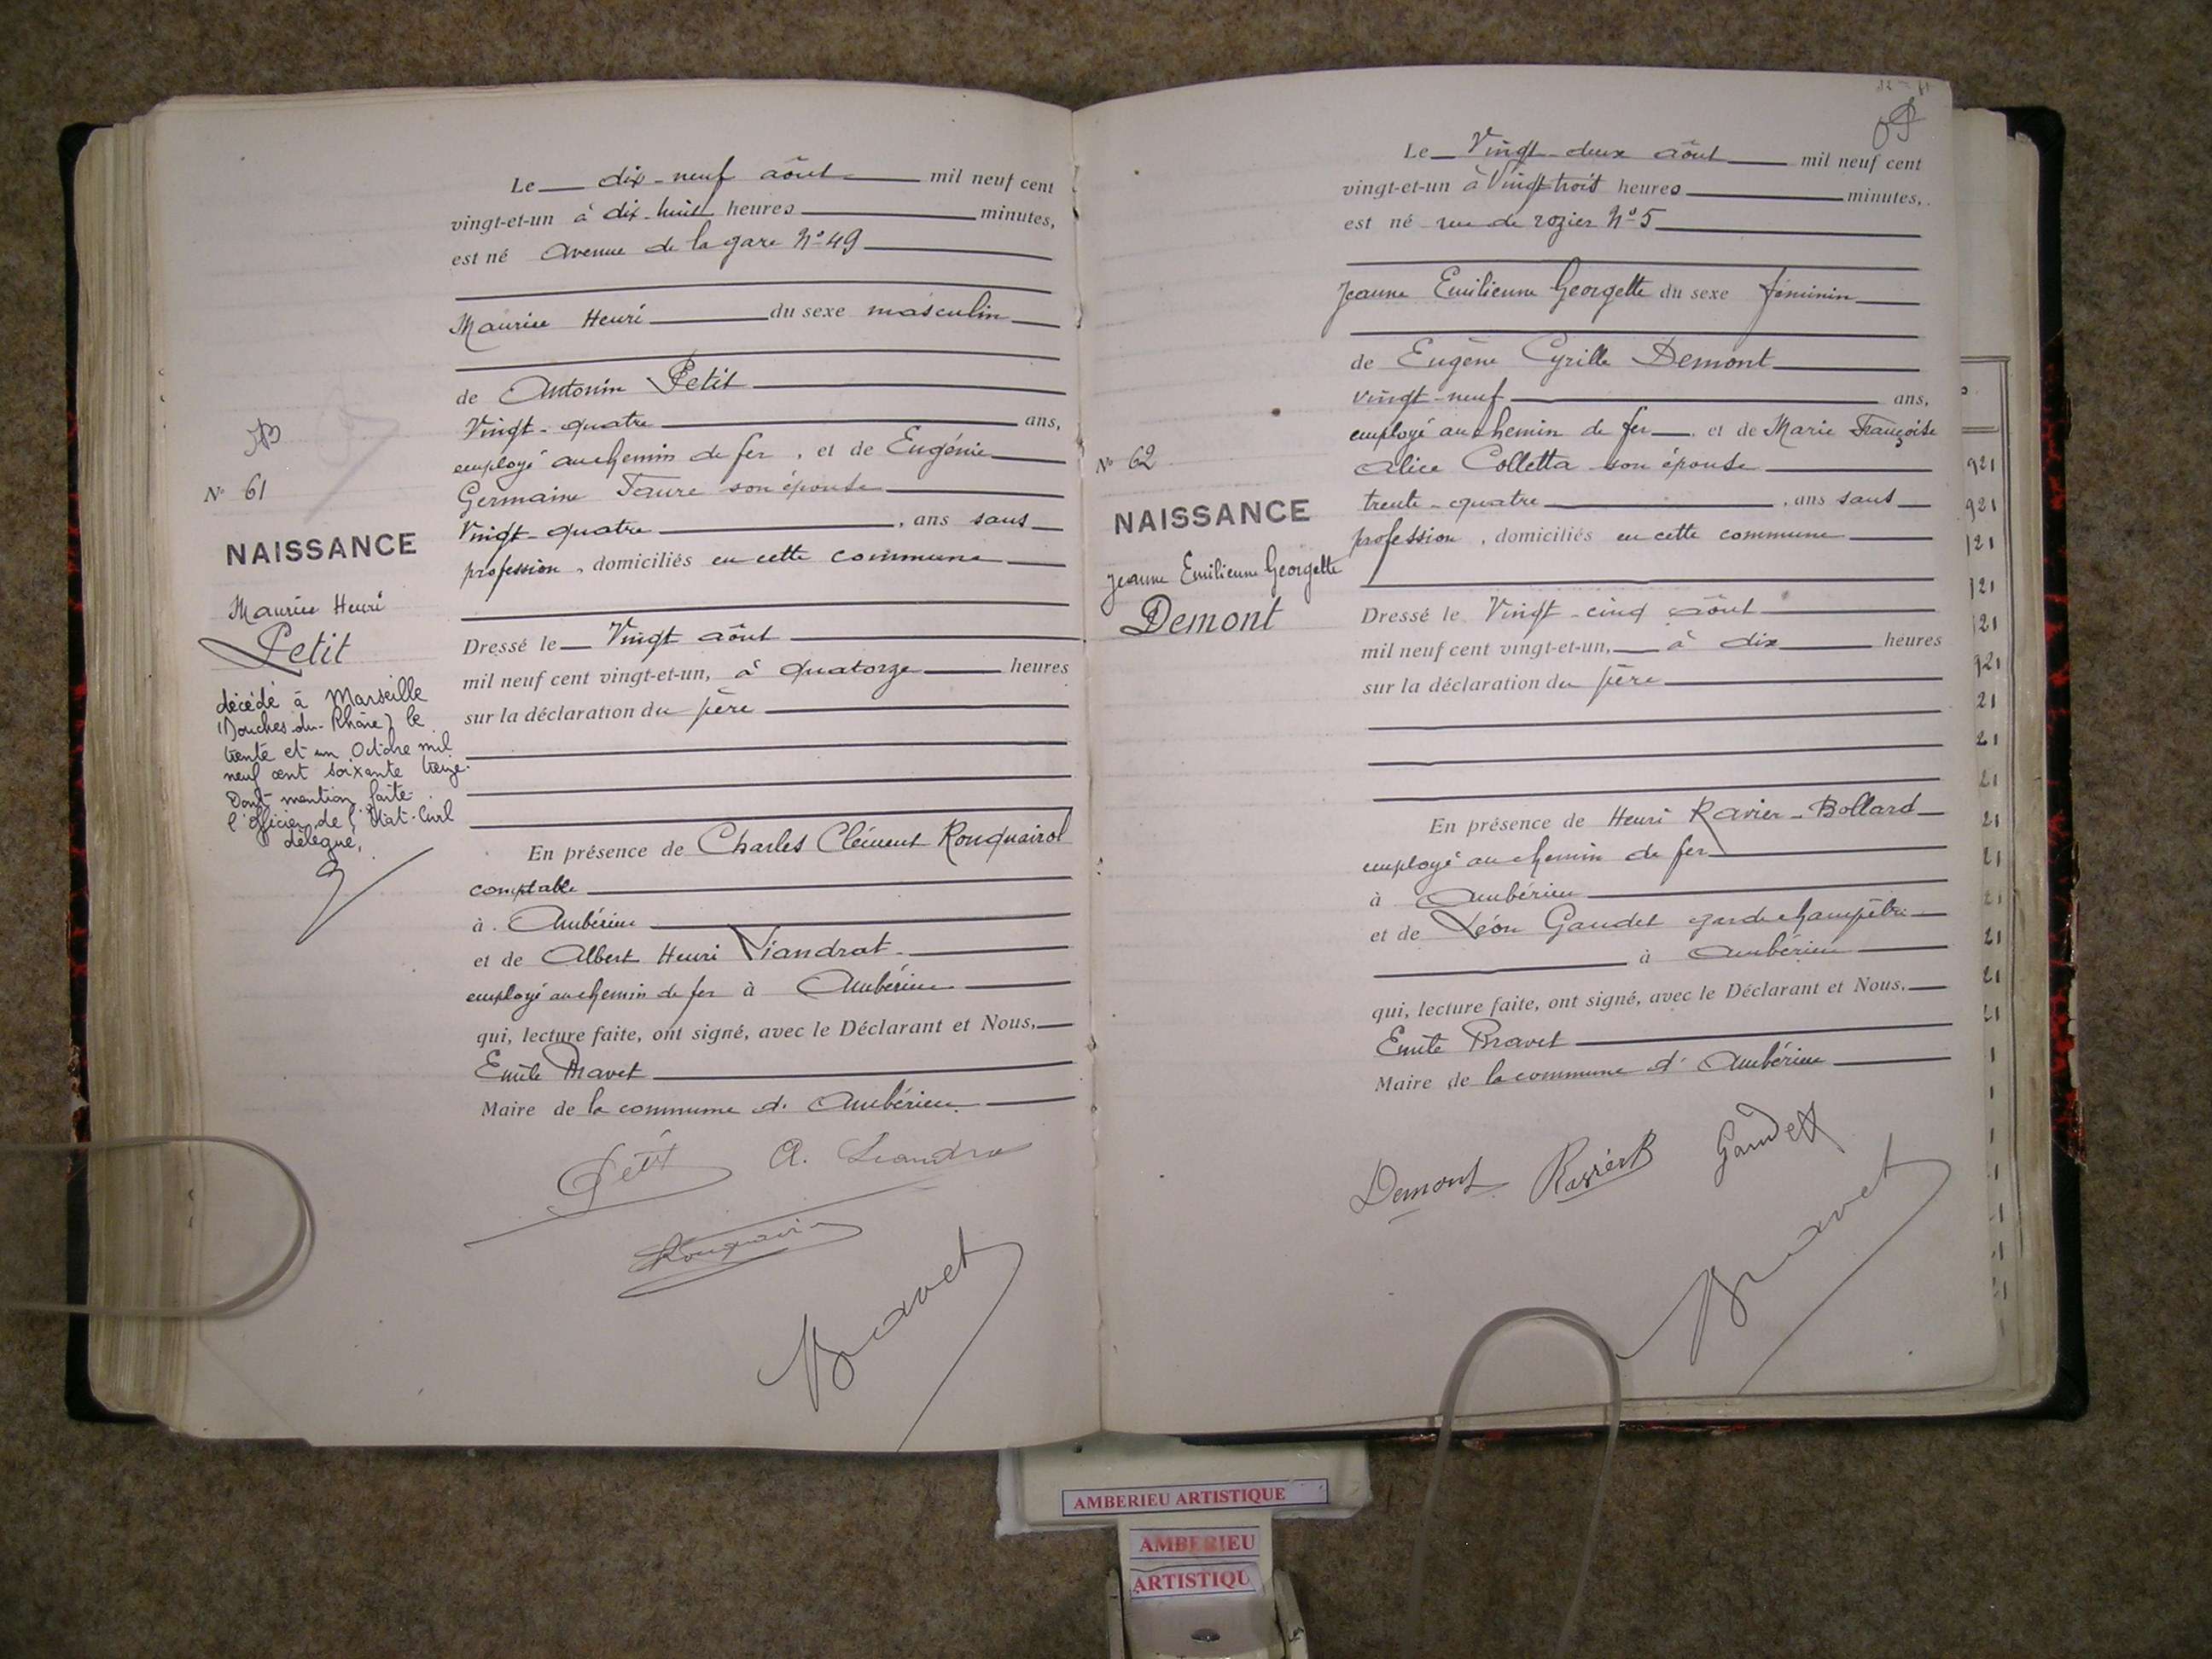 Le dix-neuf août mil neuf cent
vingt-et-un à dix-huit heures minutes,
est né Avenue de la gare N° 49
Maurice Henri du sexe masculin
de Antonin Petit
Vingt-quatre ans,
employé au chemin de fer, et de Eugénie
Germaine Faure son épouse
Vingt-quatre, ans sans
profession, domiciliés en cette commune
N° 61
NAISSANCE
Maurice Henri
Petit
décédé à Marseille
(Bouches-du-Rhône) le
trente et un Octobre mil
neuf cent soixante treize.
Dont mention faite.
l'officier de l'Etat-Civil
délégué,
Dressé le Vingt août
mil neuf cent vingt-et-un, à quatorze heures
sur la déclaration du père
En présence de Charles Clément Rouquairol
comptable
à Ambérieu
et de Albert Henri Liandrat
employé au chemin de fer à Ambérieu
qui, lecture faite, ont signé, avec le Déclarant et Nous,
Emile Bravet
Maire de la commune d'Ambérieu
Petit A. Liandra
Rouquair
Bravet
Le Vingt-deux août mil neuf cent
vingt-et-un à Vingt trois heures minutes,
est né rue de rozier N° 5
Jeanne Emilienne Georgette du sexe féminin
de Eugène Cyrille Demont
vingt-neuf ans,
employé au chemin de fer, et de Marie Françoise
Alice Colletta son épouse
trente-quatre, ans sans
profession, domiciliés en cette commune
N° 62
NAISSANCE
Jeanne Emilienne Georgette
Demont
Dressé le Vingt-cinq août
mil neuf cent vingt-et-un, à dix heures
sur la déclaration du père
En présence de Henri Ravier-Bollard
employé au chemin de fer
à Ambérieu
et de Léon Gaudet garde champêtre
à Ambérieu
qui, lecture faite, ont signé, avec le Déclarant et Nous,
Emile Bravet
Maire de la commune d'Ambérieu
Demont Ravier B Gaudet
Bravet
921
921
121
121
121
921
21
21
21
21
21
21
21
21
21
AMBERIEU ARTISTIQUE
AMBERIEU
ARTISTIQU